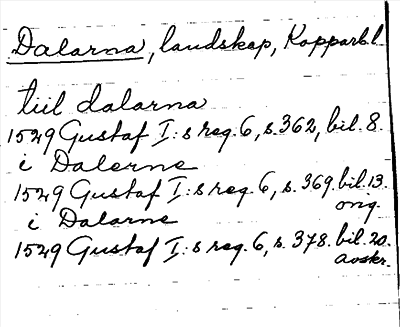 Dalarna, landskap, Kopparb.l.
till dalarna
1529 Gustaf I:s reg. 6, s. 362, bil. 8.
i Dalerne
1529 Gustaf I:s reg. 6, s. 369. bil. 13.
orig.
i Dalarne
1529 Gustaf I:s reg. 6, s. 378. bil. 20.
avskr.